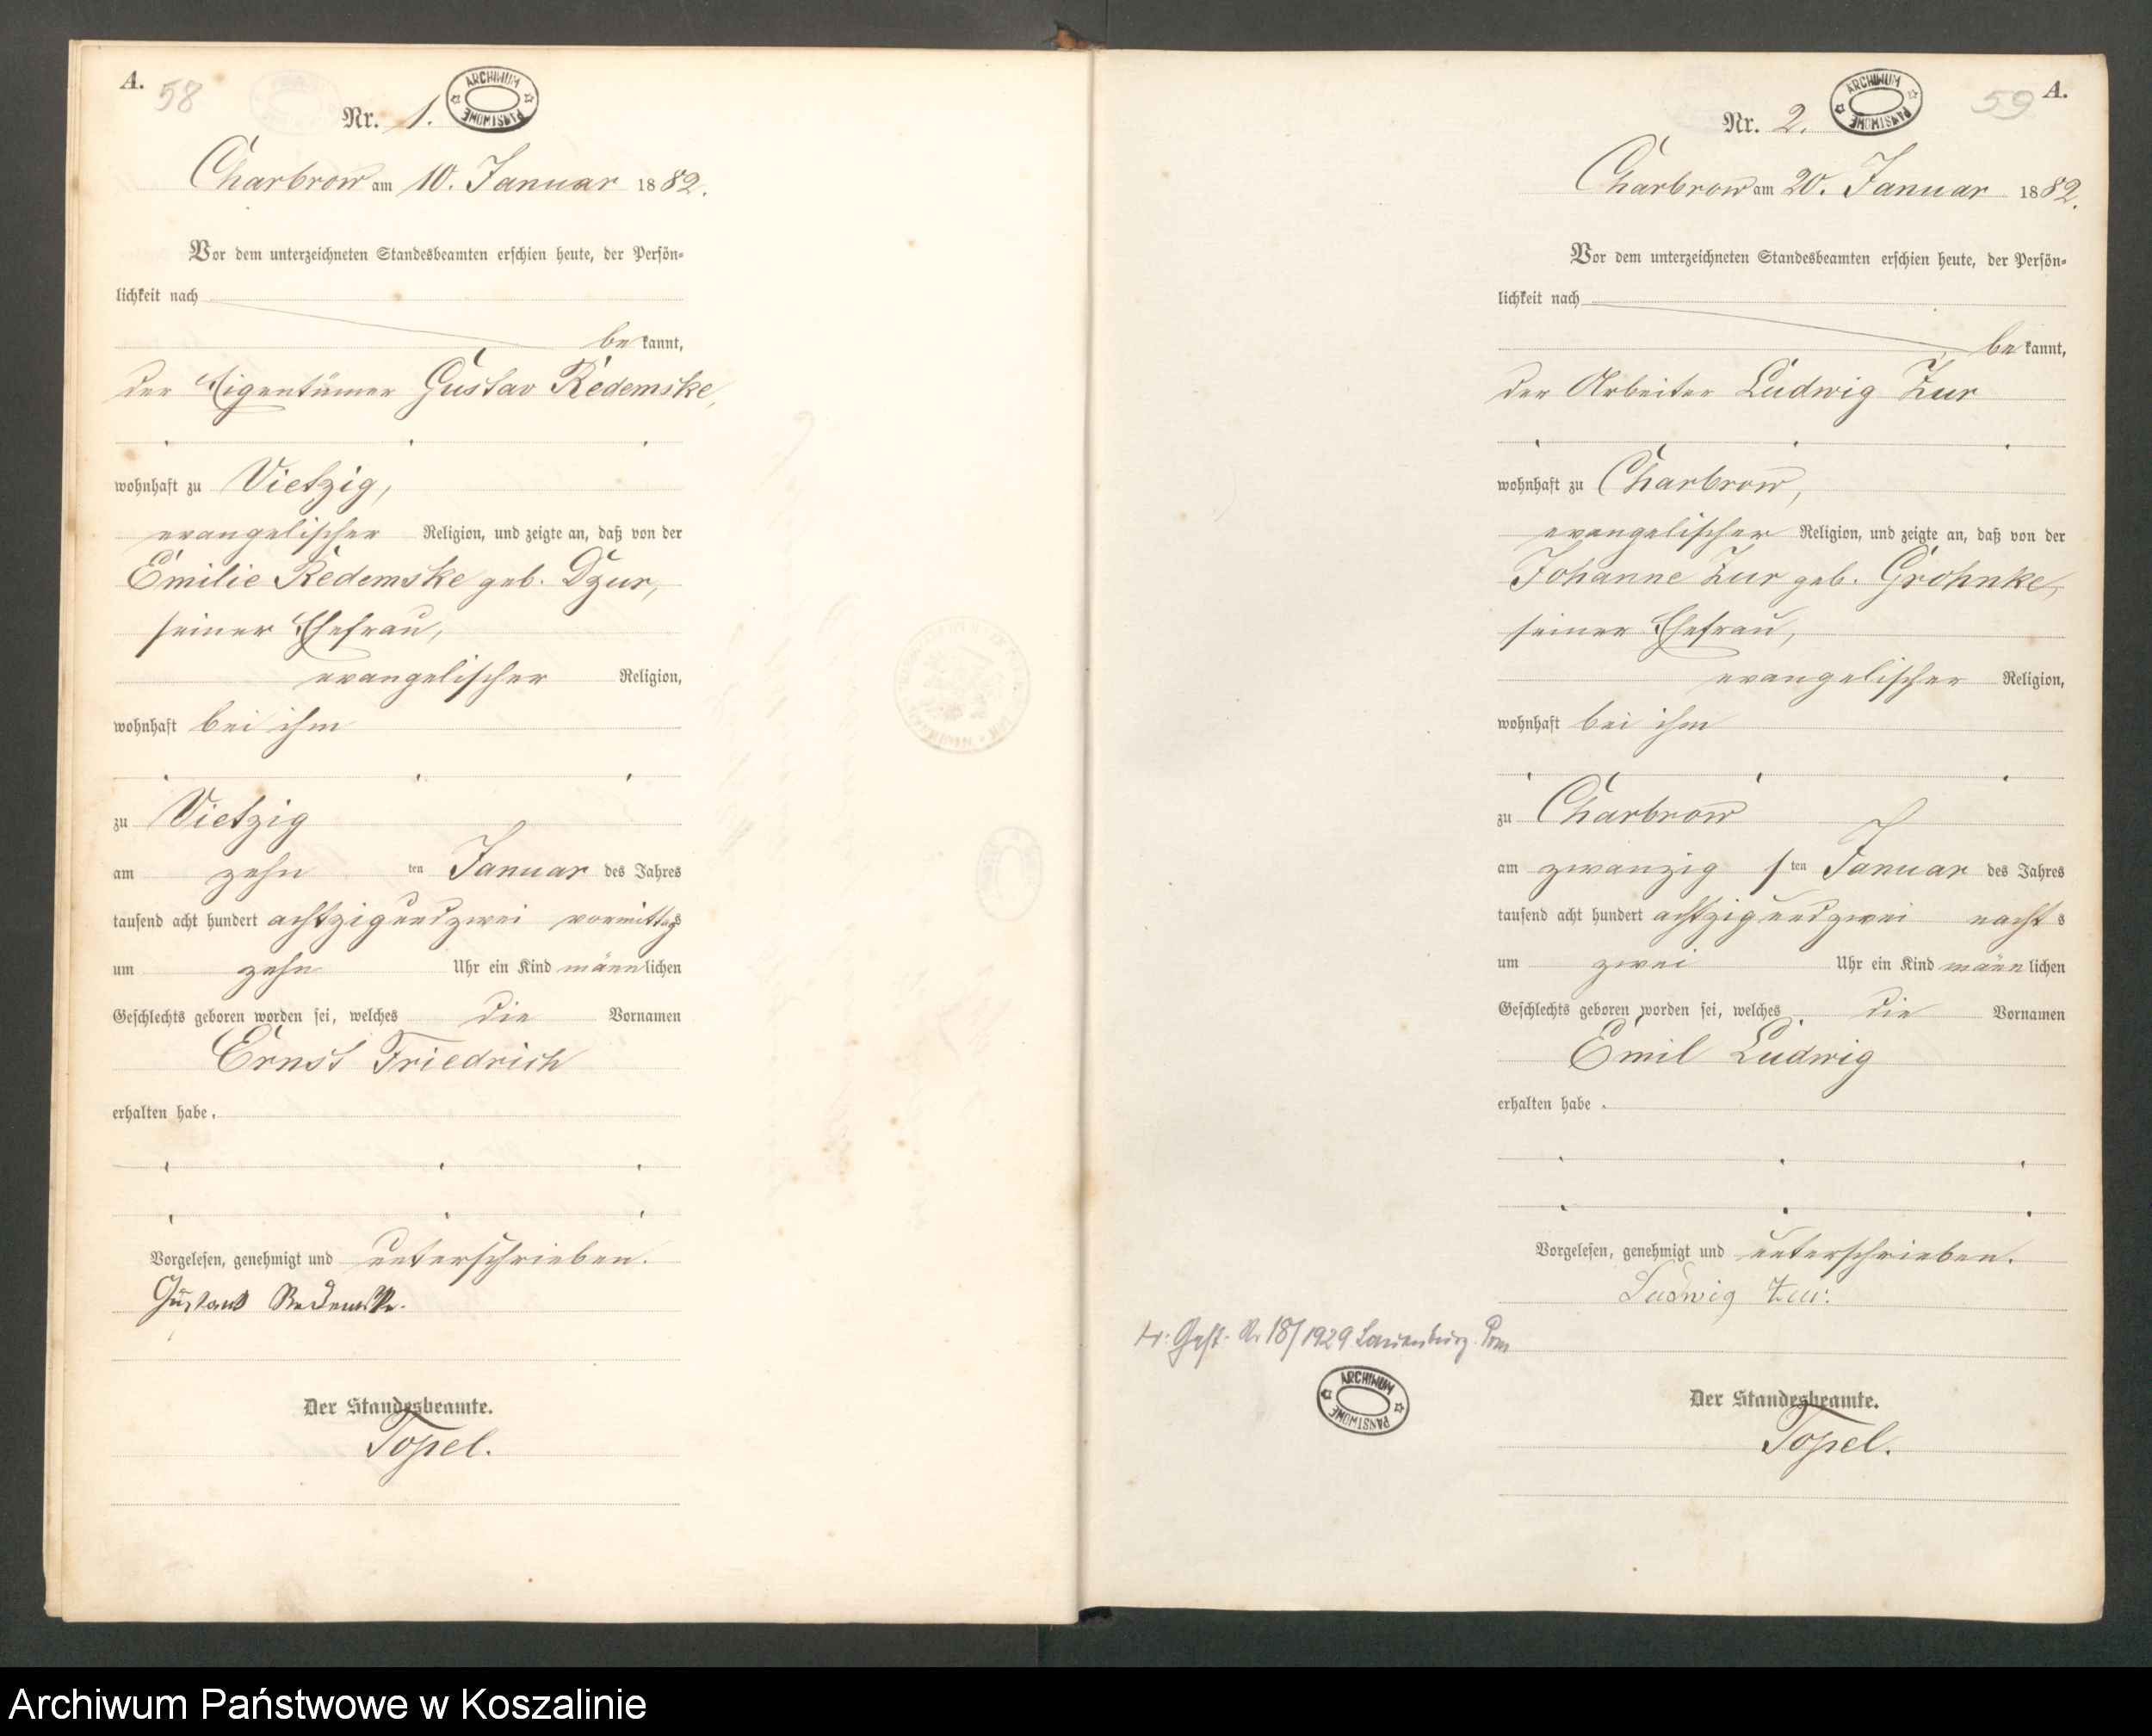 A.
58
Nr. 1.
ARCHIWUM PAŃSTWOWE
Charbrow am 10. Januar 1882.
Vor dem unterzeichneten Standesbeamten erschien heute, der Persön-
lichkeit nach
bekannt,
der Eigentümer Gustav Redemske,
wohnhaft zu Vietzig,
evangelischer Religion, und zeigte an, daß von der
Emilie Redemske geb. Dzur,
seiner Ehefrau,
evangelischer Religion,
wohnhaft bei ihm
zu Vietzig
am zehn ten Januar des Jahres
tausend acht hundert achtzig und zwei vormittags
um zehn Uhr ein Kind männlichen
Geschlechts geboren worden sei, welches die Vornamen
Ernst Friedrich
erhalten habe.
Vorgelesen, genehmigt und unterschrieben.
Gustav Redemske.
Der Standesbeamte.
Topel.
59
A.
Nr. 2.
ARCHIWUM PAŃSTWOWE
Charbrow am 20. Januar 1882.
Vor dem unterzeichneten Standesbeamten erschien heute, der Persön-
lichkeit nach
bekannt,
der Arbeiter Ludwig Zur
wohnhaft zu Charbrow,
evangelischer Religion, und zeigte an, daß von der
Johanne Zur geb. Grohnke,
seiner Ehefrau,
evangelischer Religion,
wohnhaft bei ihm
zu Charbrow
am zwanzigsten Januar des Jahres
tausend acht hundert achtzig und zwei nachts
um zwei Uhr ein Kind männlichen
Geschlechts geboren worden sei, welches die Vornamen
Emil Ludwig
erhalten habe.
Vorgelesen, genehmigt und unterschrieben.
Ludwig Zur.
Nr. 18/1929 Lauenburg. Pom
ARCHIWUM PAŃSTWOWE
Der Standesbeamte.
Topel.
Archiwum Państwowe w Koszalinie